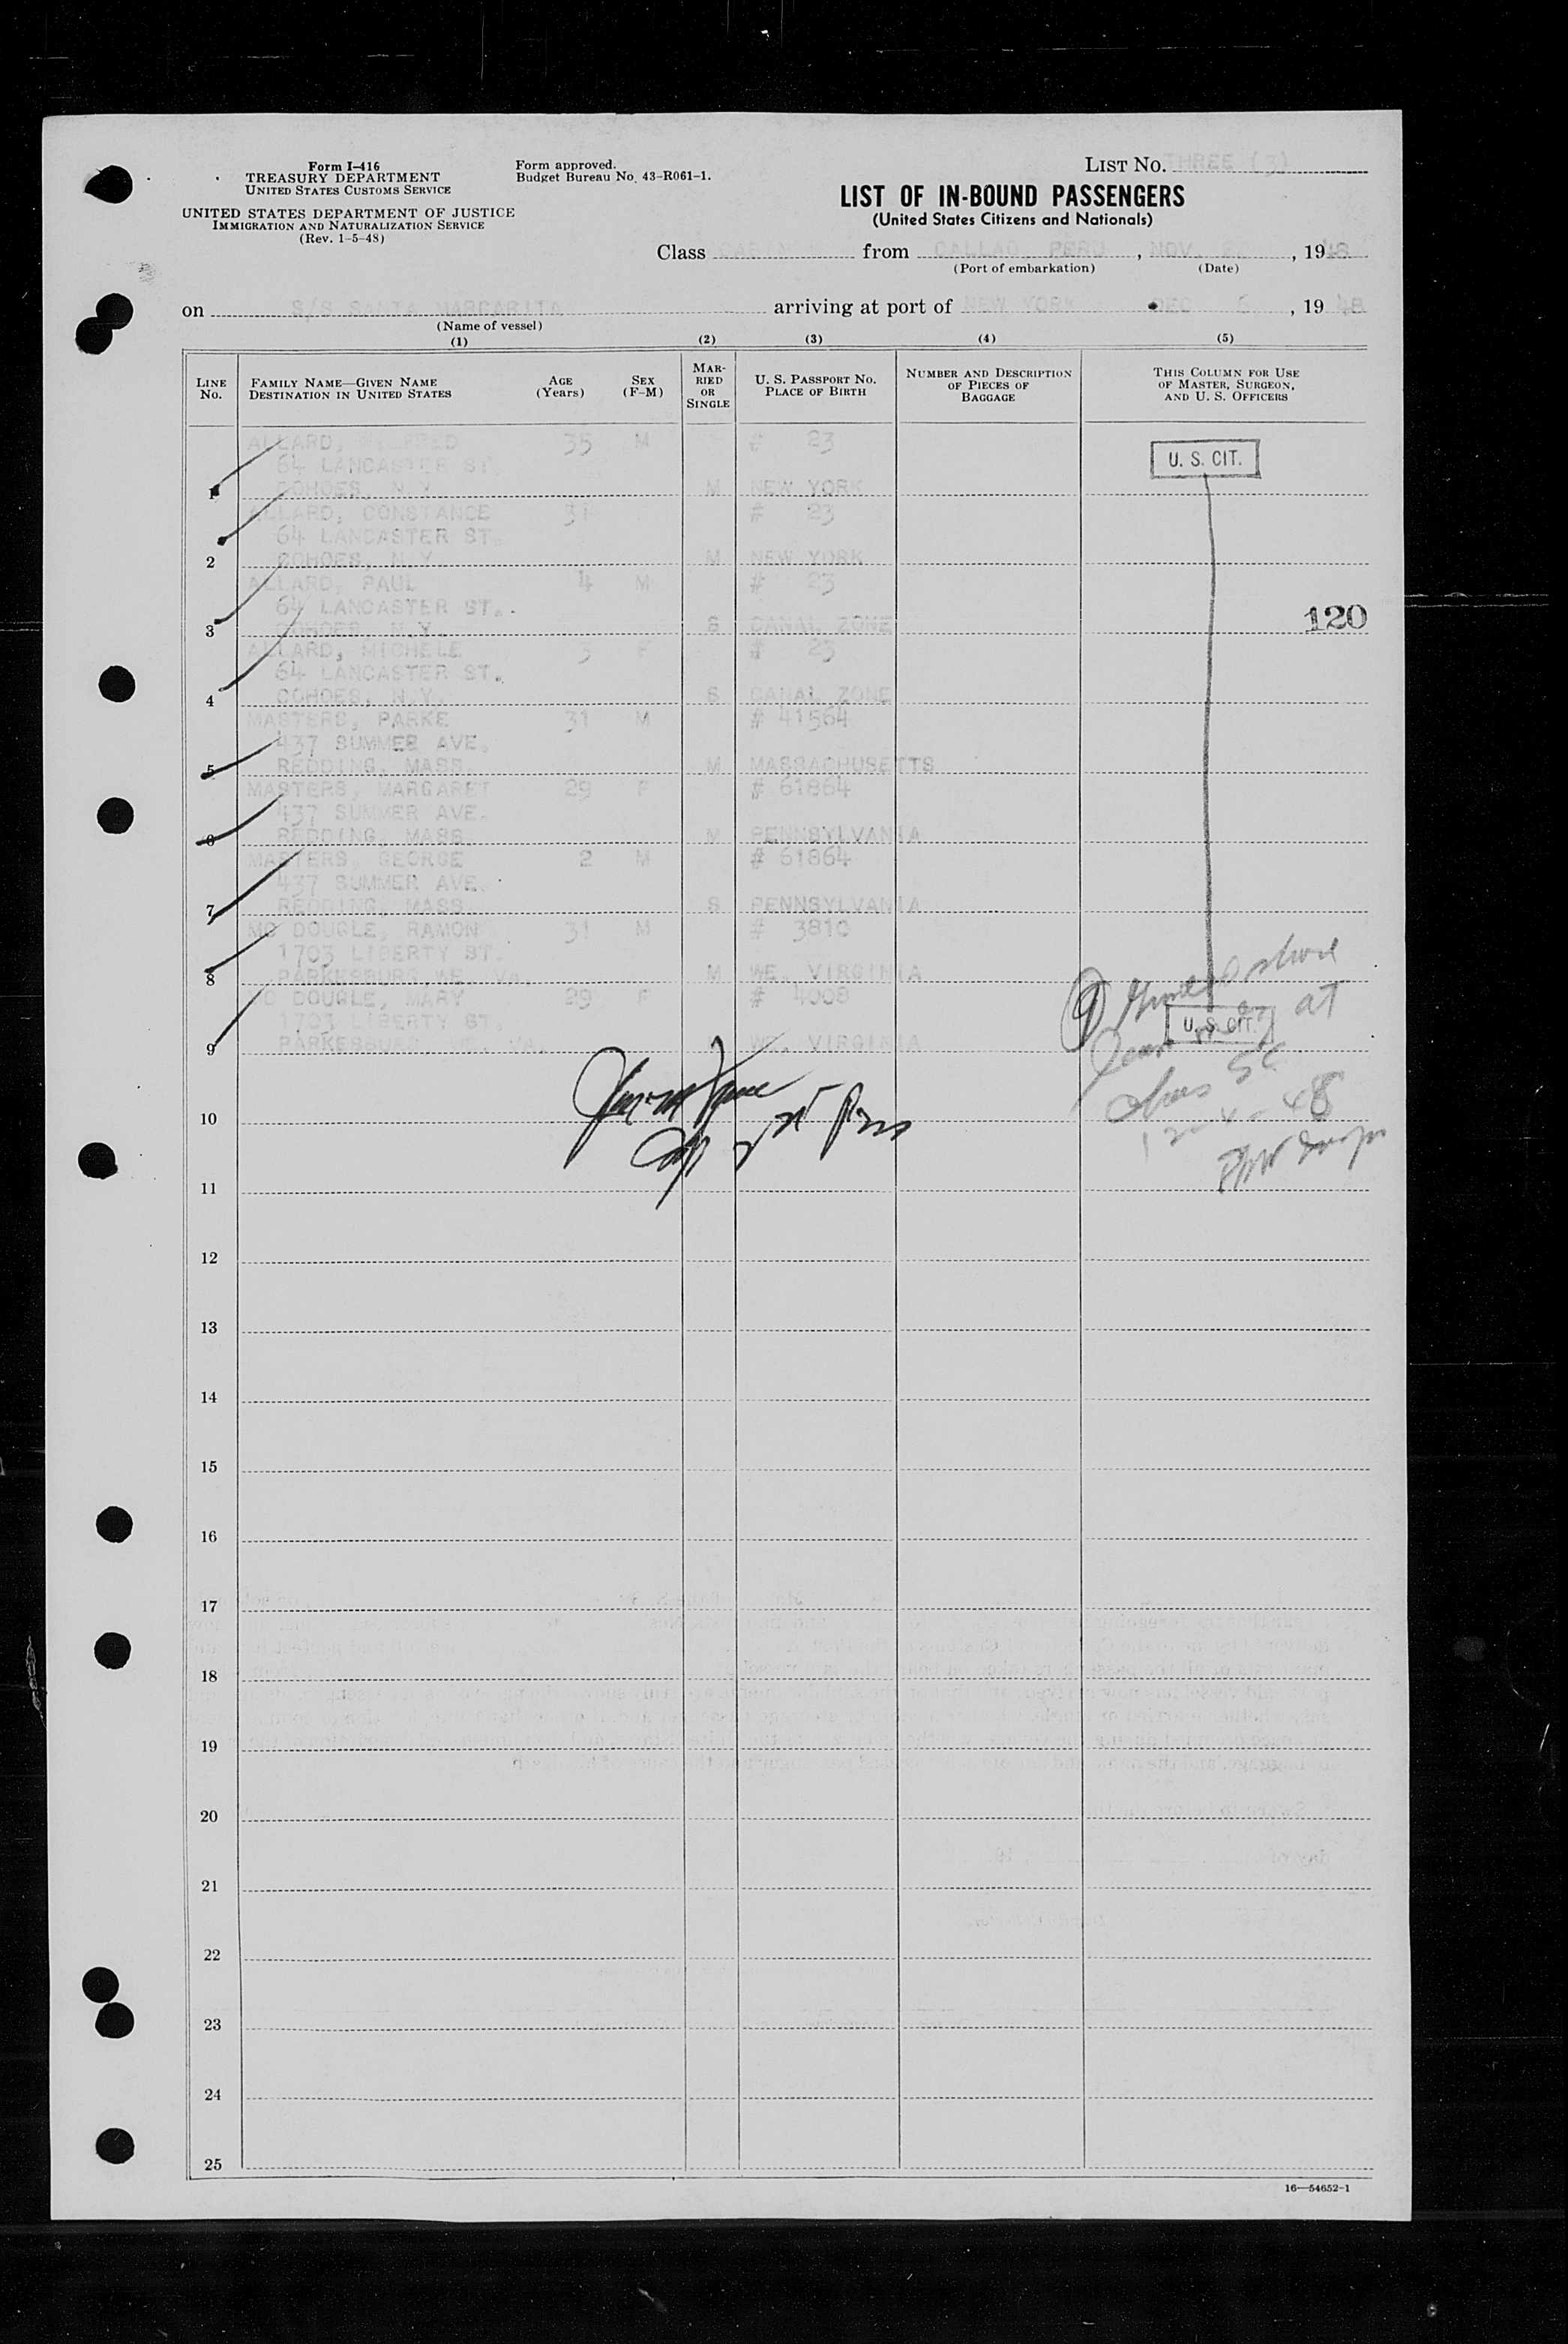 Form I-416
TREASURY DEPARTMENT
UNITED STATES CUSTOMS SERVICE
UNITED STATES DEPARTMENT OF JUSTICE
IMMIGRATION AND NATURALIZATION SERVICE
(Rev. 1-5-48)
Form approved.
Budget Bureau No. 43-R061-1.
LIST NO. THREE (3)
LIST OF IN-BOUND PASSENGERS
(United States Citizens and Nationals)
Class CABIN from CALLAO PERU, NOV., 1948
(Port of embarkation) (Date)
on S/S SANTA MARGARITA arriving at port of NEW YORK DEC 6, 1948
(Name of vessel)
(1) (2) (3) (4) (5)
LINE No.
FAMILY NAME—GIVEN NAME
DESTINATION IN UNITED STATES
AGE (Years)
SEX (F-M)
MARRIED OR SINGLE
U. S. PASSPORT NO.
PLACE OF BIRTH
NUMBER AND DESCRIPTION OF PIECES OF BAGGAGE
THIS COLUMN FOR USE OF MASTER, SURGEON, AND U. S. OFFICERS
ALLARD, 35 M # 23
64 LANCASTER ST.
1 COHOES, N.Y. M NEW YORK
U. S. CIT.
ALLARD, CONSTANCE 31 # 23
64 LANCASTER ST.
2 COHOES, N.Y. M NEW YORK
ALLARD, PAUL 4 M # 23
64 LANCASTER ST.
3 COHOES, N.Y. S CANAL ZONE
120
ALLARD, MICHELE 3 F # 23
64 LANCASTER ST.
4 COHOES, N.Y. S CANAL ZONE
MASTERS, PARKE 31 M # 41564
437 SUMMER AVE.
5 REDDING, MASS. M MASSACHUSETTS
MASTERS, MARGARET 29 F # 61864
437 SUMMER AVE.
6 REDDING, MASS. M PENNSYLVANIA
MASTERS, GEORGE 2 M # 61864
437 SUMMER AVE.
7 REDDING, MASS. S PENNSYLVANIA
MC DOUGLE, RAMON 31 M # 3810
1703 LIBERTY ST.
8 PARKESBURG WE. VA. M WE. VIRGINIA
MC DOUGLE, MARY 29 F # 4008
1703 LIBERTY ST.
9 PARKESBURG WE. VA. WE. VIRGINIA
U. S. CIT.
at
12-4-48
10
11
12
13
14
15
16
17
18
19
20
21
22
23
24
25
16—54652-1